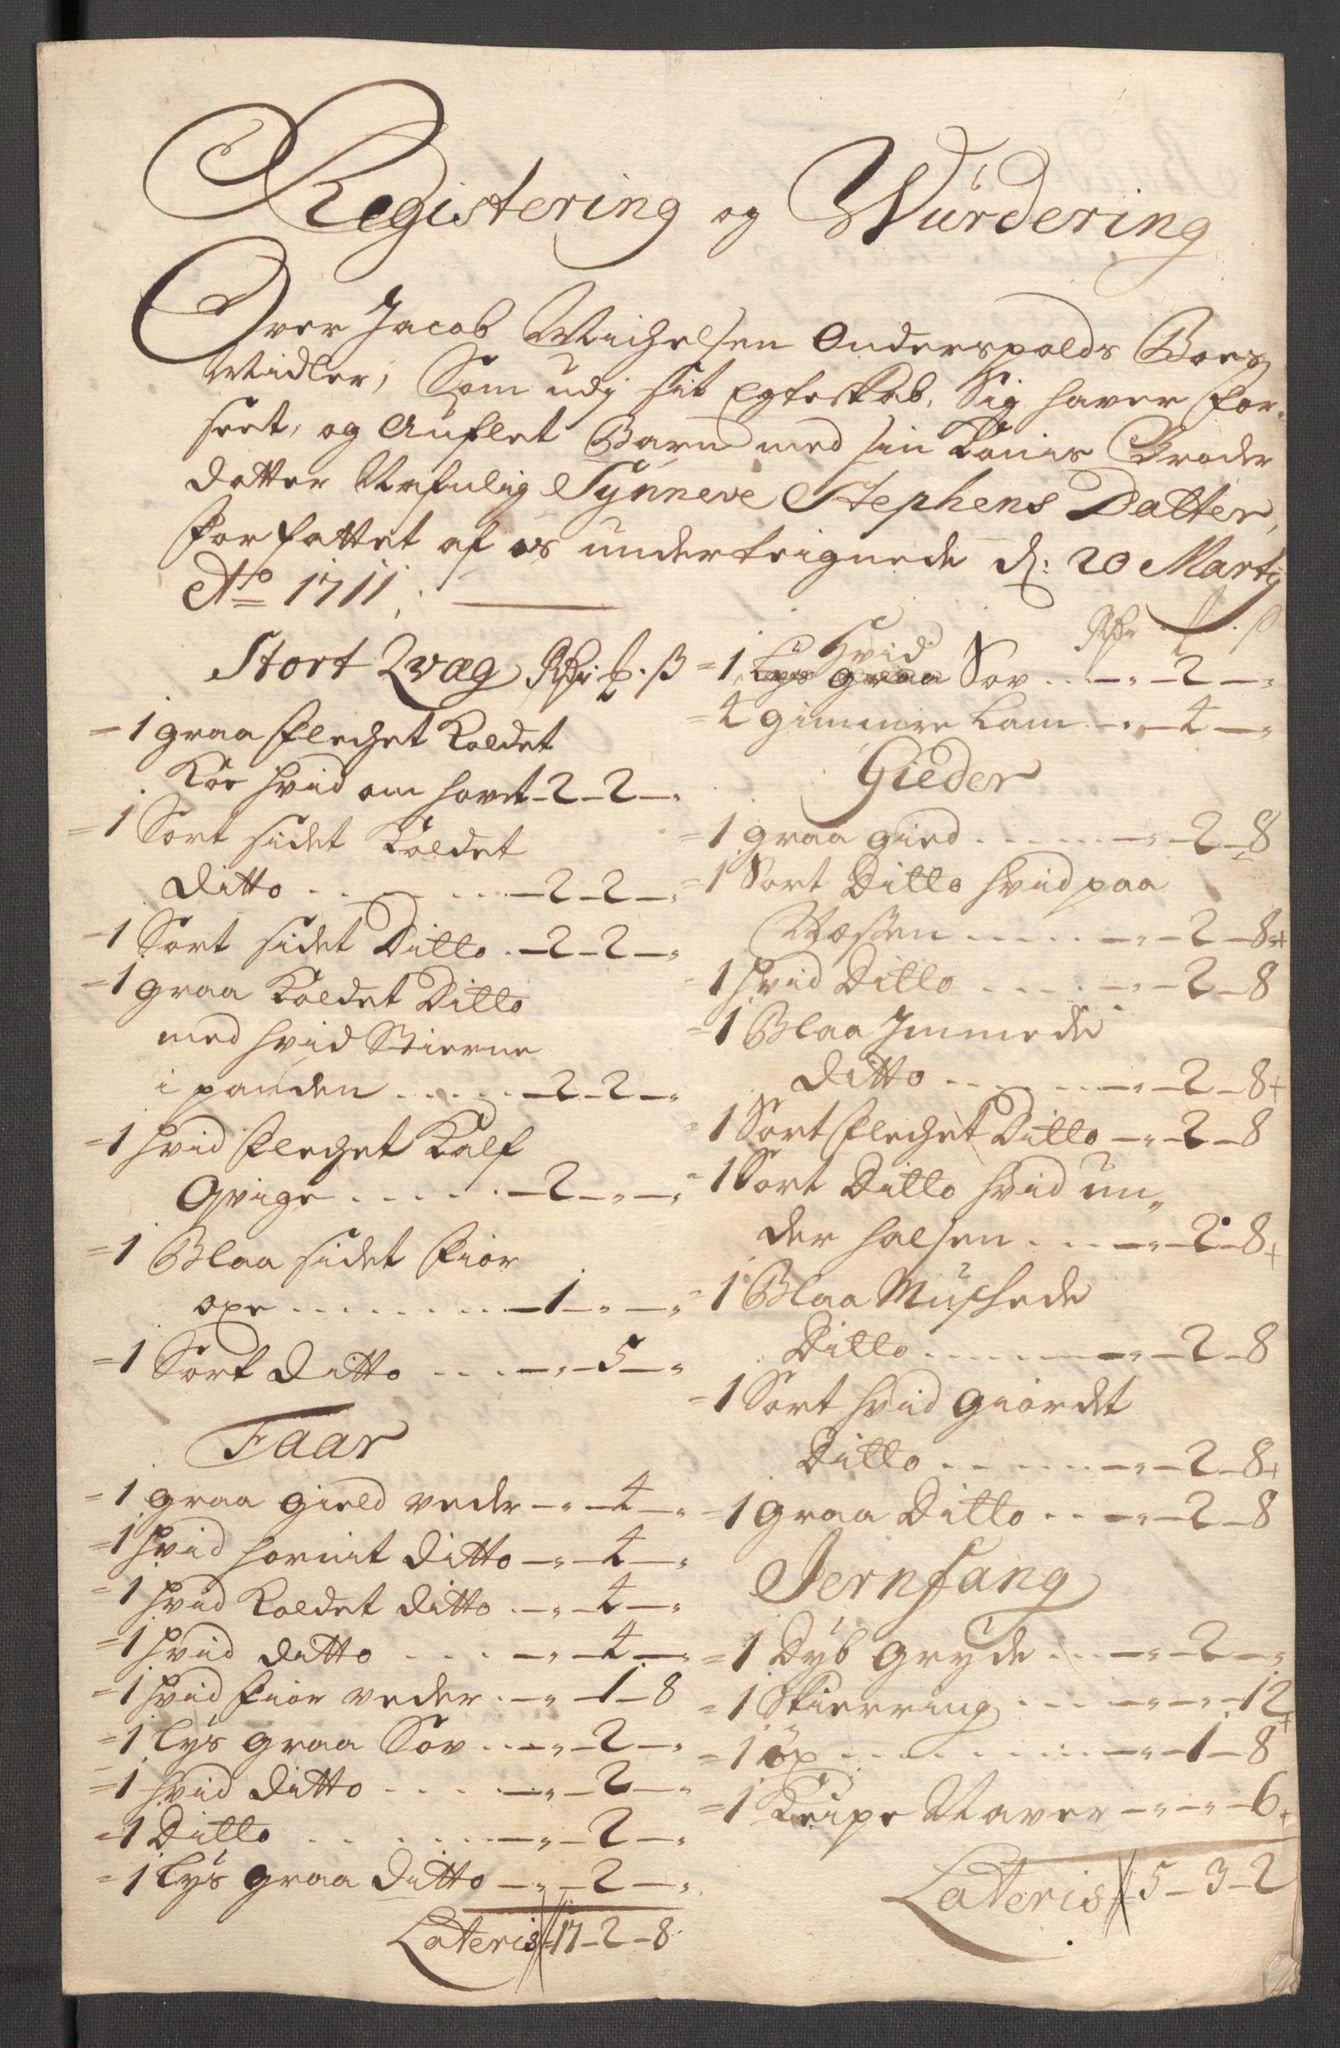 Registering og Wurdering
Over Jacob Michelsen Onderspolds Boes
Midler, Som udj sit Egteskab, Sig haver for,
seet, og Auflet Barn med sin Konis Broder
datter Nafnlig Synneve Stephens Datter,
forfattet af os underteignede d: 20 Martij
Ao 1711:
Stort Qvæg Rdr: t. ß
= 1 graa flechet Koldet
Koe hvid om hovet - 2 - 2 - "
= 1 Sort sidet Koldet
Ditto . . . . - 2 - 2 - "
= 1 Sort sidet Ditto . - 2 - 2 - "
= 1 graa Koldet Ditto
med hvid Stierne
i panden . . . . - 2 - 2 - "
= 1 hvid flechet Kalf
Qvige . . . . . - 2 - " - "
= 1 Blaa sidet fior
oxe . . . . . . - 1 - " - "
= 1 Sort Ditto . . . - " - 5 - "
Faar
= 1 graa gield veder - " - 4 - "
= 1 hvid hornit Ditto - " - 4 - "
= 1 hvid Koldet Ditto . - " - 4 - "
= 1 hvid Ditto . . . - " - 4 - "
= 1 hvid fior veder . - " - 1 - 8
= 1 lys graa Sov . . - " - 2 - "
= 1 hvid Ditto . . . . - " - 2 - "
= 1 Ditto . . . . . . - " - 2 - "
= 1 lys graa Ditto - " - 2 - "
Lateris 17 - 2 - 8
Rdr t. ß
hvid
= 1 Lys graa Sov . . - " - 2 - "
= 4 gimmre Lam - " - 4 - "
Gieder
= 1 graa gied . . . . . - " - 2 - 8
= 1 Sort Ditto hvid paa
Næssen . . . . . - " - 2 - 8 +
= 1 hvid Ditto . . . . - " - 2 - 8
= 1 Blaa Jmmede
Ditto . . . . . - " - 2 - 8 +
= 1 Sort flechet Ditto - " - 2 - 8
= 1 Sort Ditto hvid un,,
der halsen . . . - " - 2 - 8 +
= 1 Blaa Mushede
Ditto . . . . . . - " - 2 - 8
= 1 Sort hvid giordet
Ditto . . . . . . - " - 2 - 8 +
= 1 graa Ditto . . - " - 2 - 8
Jernfang
= 1 Dyb gryde . . - " - 2 - "
= 1 Skierring . . . - " - " - 12
= 1 øx . . . . . . . - " - 1 - 8 +
= 1 Keipe Naver - " - " - 6 +
Lateris 5 - 3 - 2